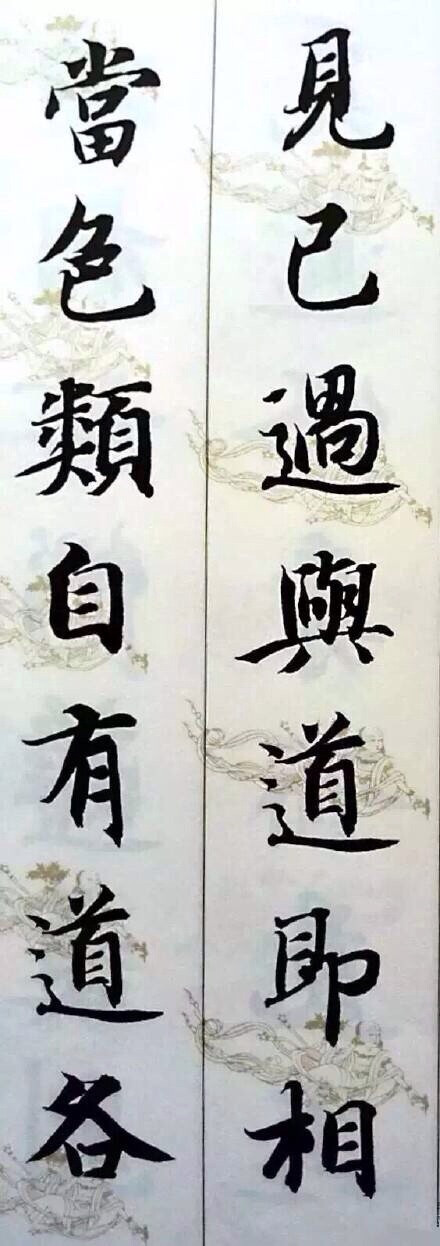 見己過與道即相
當色類自有道各